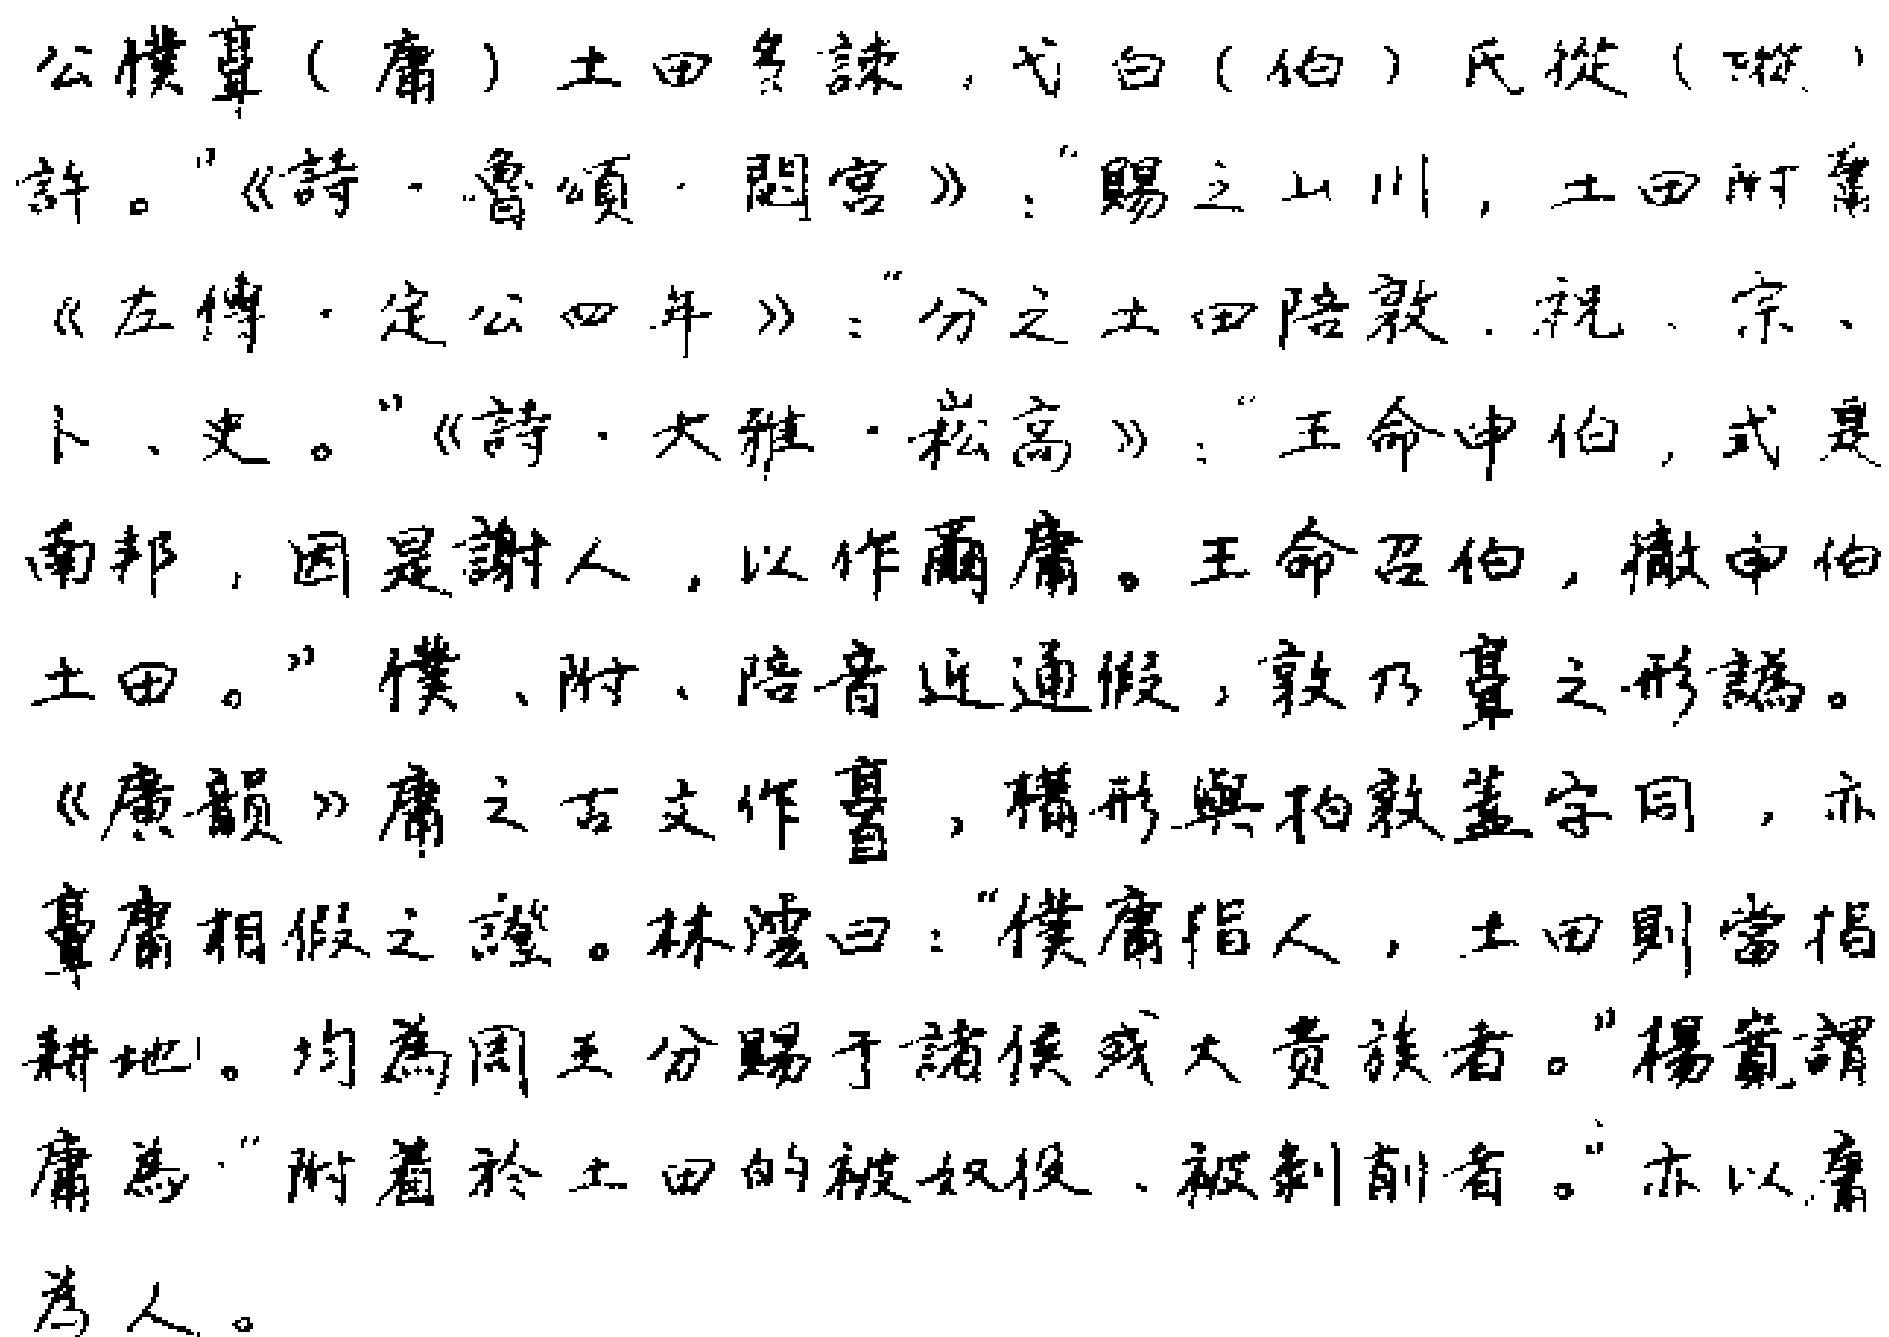 公僕𩫏（庸）土田多諫，弋白（伯）氏從（縱）
許。”《詩·魯頌·閟宮》：“賜之山川，土田附庸
《左傳·定公四年》：“分之土田陪敦、祝、宗、
卜、史。”《詩·大雅·崧高》：“王命申伯，式是
南邦，因是謝人，以作爾庸。王命召伯，徹申伯
土田。”僕、附、陪音近通假，敦乃𩫏之形譌。
《廣韻》庸之古文作，構形與拍敦蓋字同，亦
𩫏庸相假之證。林澐曰：“僕庸指人，土田則當指
耕地。均為周王分賜于諸侯或大貴族者。”楊寬謂
庸為“附着於土田的被奴役、被剝削者。”亦以庸
為人。